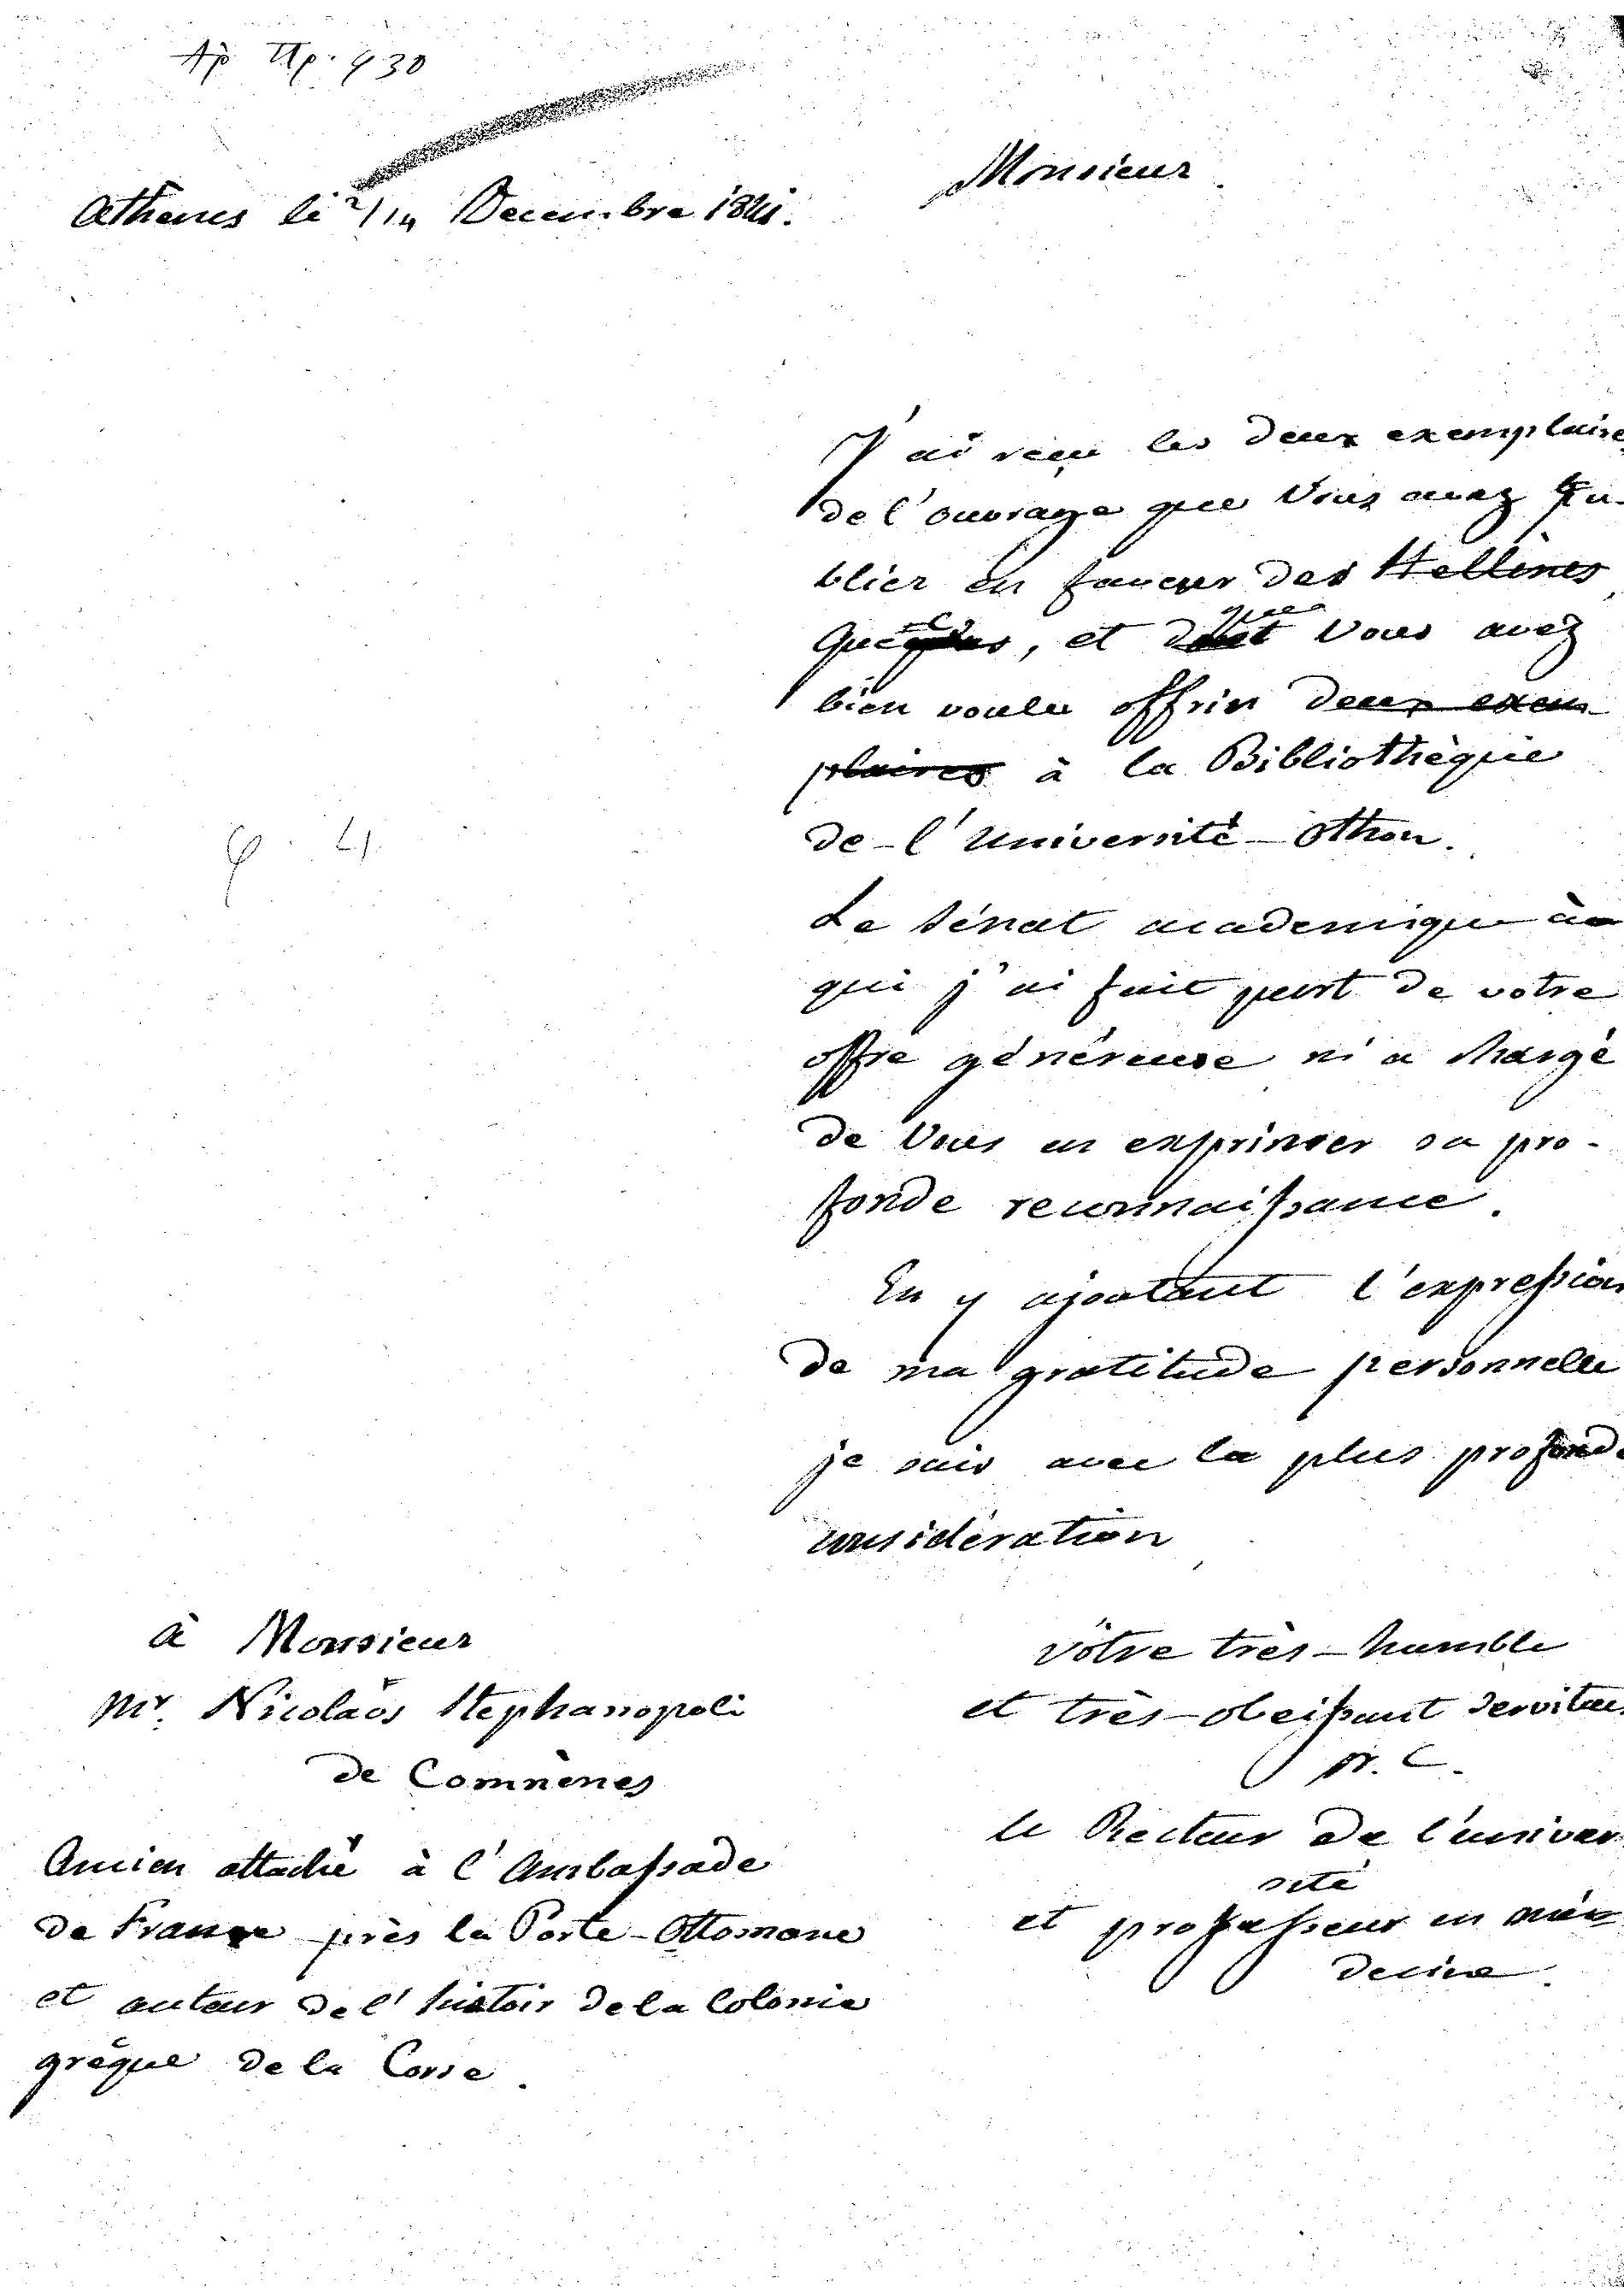 Ἀρ. Πρ. 430
Athènes le 2/14 Decembre 1841.
Monsieur
J'ai reçu les deux exemplaires
de l'ouvrage que Vous avez pu-
blier en faveur des Hellènes
, et que Vous avez
bien voulu offrir deux exem-
plaires à la Bibliothèque
de-l'Université-Othon.
φ. 4.
Le Sénat academique à
qui j'ai fait part de votre
offre généreuse m'a chargé
de Vous en exprimer sa pro-
fonde reconnaissance.
En y ajoutant l'expression
de ma gratitude personnelle
je suis avec la plus profonde
considération
vôtre très-humble
et très-obeissant serviteur
N. C.
le Recteur de l'univer
sité
et professeur en mé
decine.
à Monsieur
Mr. Nicolaos Stephanopoli
de Comnènes
Ancien attaché à l'Ambassade
de France près la Porte-Ottomane
et auteur de l'histoir de la Colonie
grèque de la Corse.